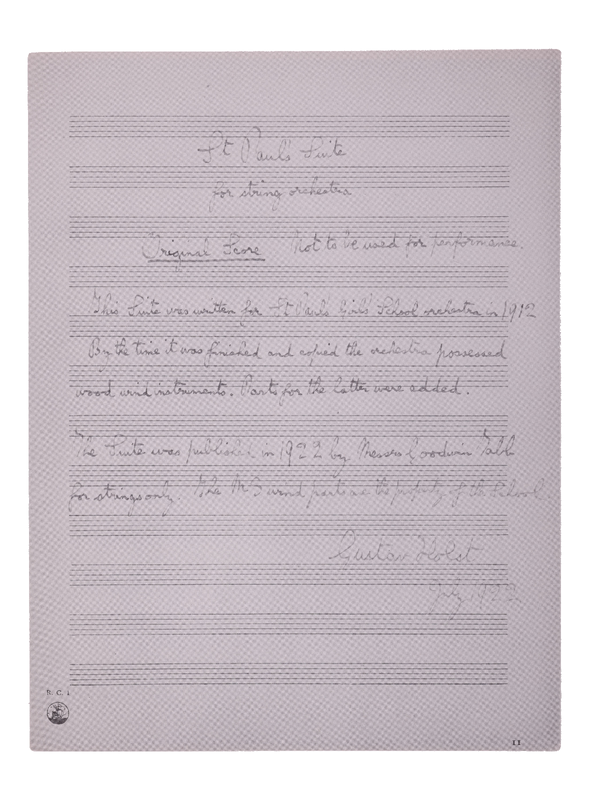 St Paul's Suite
for string orchestra
Original Score Not to be used for performance.
This Suite was written for St Paul's Girls' School orchestra in 1912
By the time it was finished and copied the orchestra possessed
wood wind instruments. Parts for the latter were added.
The Suite was published in 1922 by Messrs Goodwin Tabb
for strings only. The MS wind parts are the property of the School
Gustav Holst
July 1922
R. C. 1
11